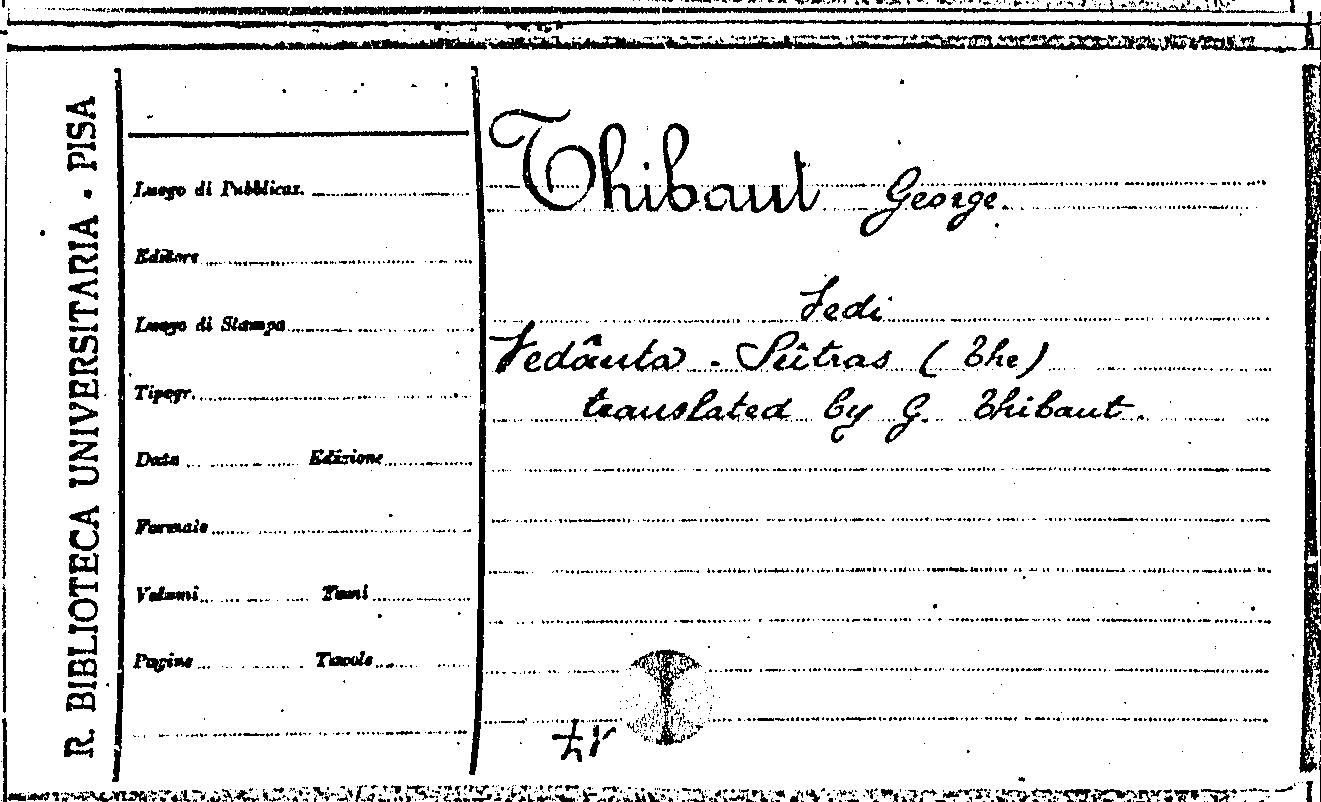 R. BIBLIOTECA UNIVERSITARIA - PISA
Luogo di Pubblicaz.
Editore
Luogo di Stampa
Tipogr.
Data Edizione
Formato
Volumi Tomi
Pagine Tavole
Thibaut George.
Vedi
Vedânta - Sûtras ( The )
translated by G. Thibaut.